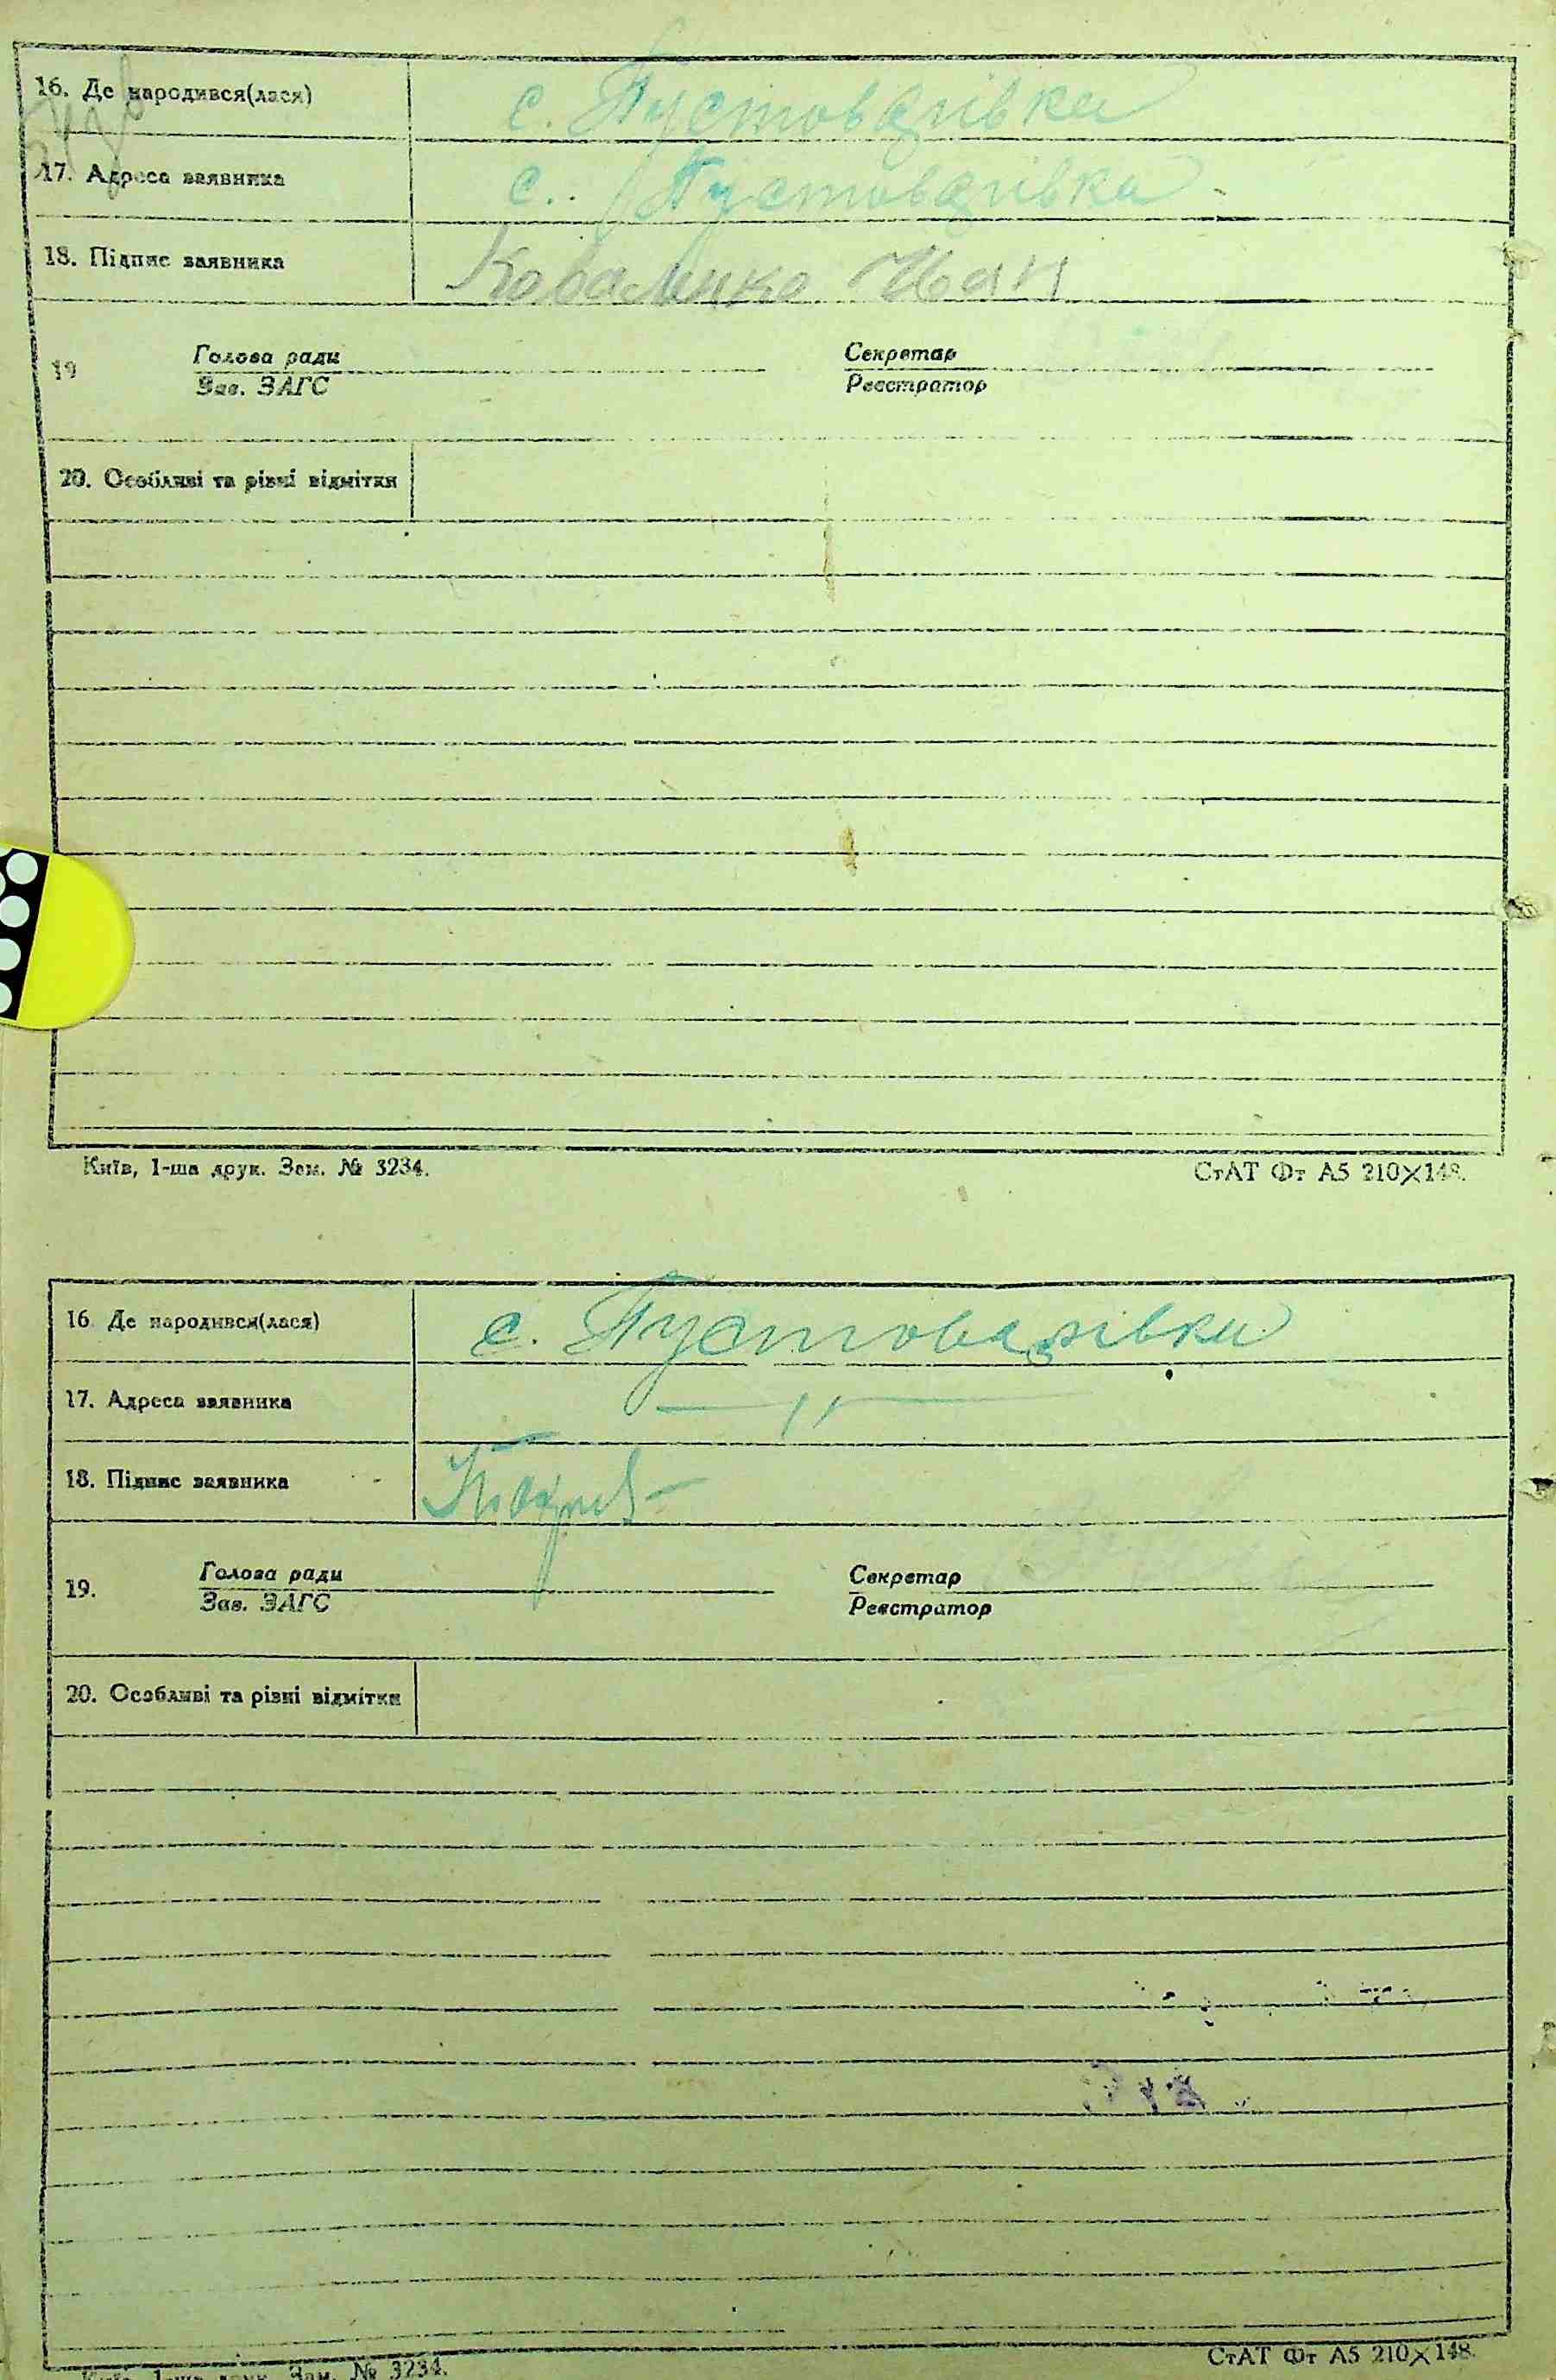 16. Де народився(лася) с. Пустоварівка
17. Адреса заявника с. Пустоварівка
18. Підпис заявника Коваленко Иван
19 Голова ради Секретар
Зав. ЗАГС Реєстратор
20. Особливі та різні відмітки
Київ, 1-ша друк. Зам. № 3234. СтАТ Фт А5 210×148.
16. Де народився(лася) с. Пустоварівка
17. Адреса заявника —〃—
18. Підпис заявника
19. Голова ради Секретар
Зав. ЗАГС Реєстратор
20. Особливі та різні відмітки
Київ, 1-ша друк. Зам. № 3234. СтАТ Фт А5 210×148.